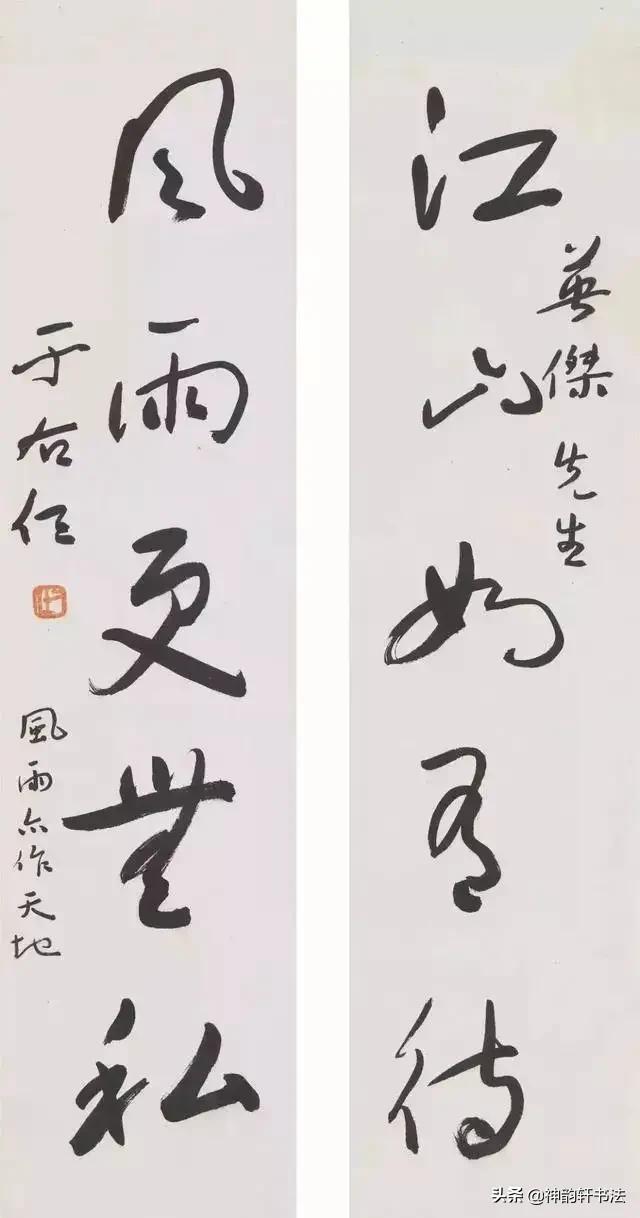 英傑先生
江山如有待
風雨更無私
于右任
風雨亦作天地
头条@神韵轩书法